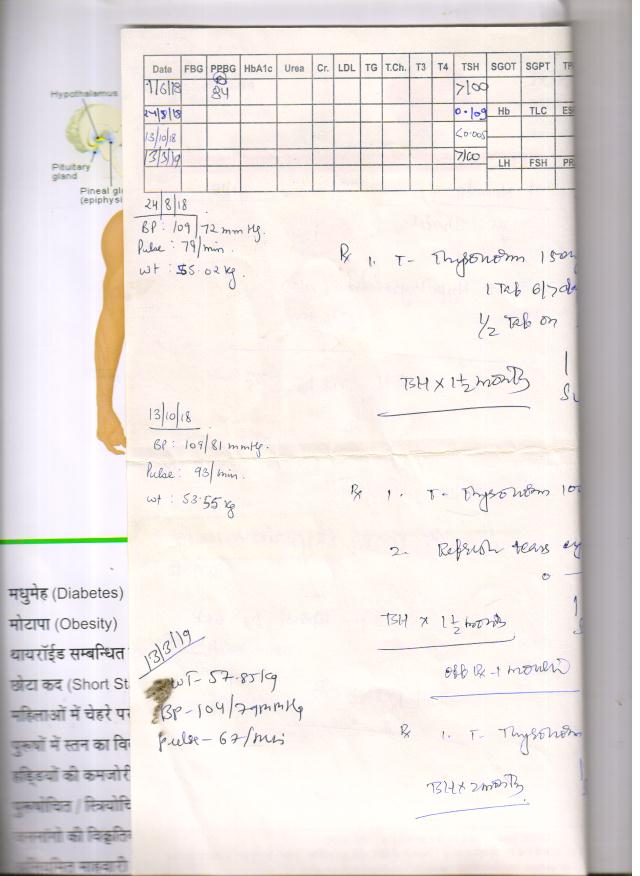 Date FBG PPBG HbA1c Urea Cr. LDL TG T.Ch. T3 T4 TSH SGOT SGPT
1/6/18 84 >100
24/8/18 0.109 Hb TLC
13/10/18 <0.005
13/3/19 >100 LH FSH
Hypothalamus
Pituitary
gland
Pineal
(epiphysi
24/8/18
BP: 109/72 mmHg.
Pulse: 79/min.
wt: 55.02 kg.
Rx 1. T- Thyronorm 150
1 Tab 6/7
1/2 Tab on
BH x 1 1/2 months
13/10/18
BP: 109/81 mmHg.
Pulse: 93/min.
wt: 53.55 kg
Rx 1. T- Thyronorm 100
2. Refresh tears
BH x 1 1/2 months
13/3/19
WT- 57.85kg
BP-104/79mmHg
Pulse-67/min
off Rx - 1 month
Rx 1. T- Thyronorm
BH x 2 months
मधुमेह (Diabetes)
मोटापा (Obesity)
थायरॉईड सम्बन्धित
छोटा कद (Short St
महिलाओं में चेहरे पर
पुरूषों में स्तन का
हड्डियों की कमजोरी